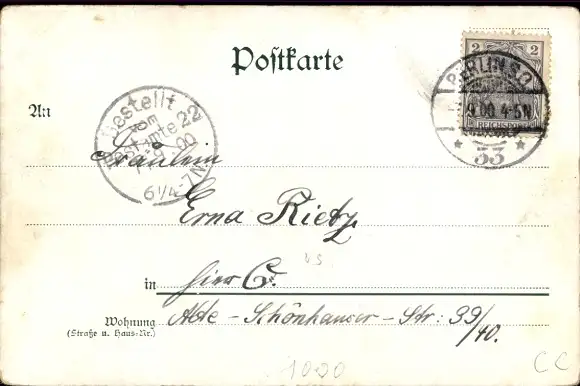 Postkarte
2 2
REICHSPOST
BERLIN S.O.
9.00 4-5N
* 33 *
An
Bestellt
vom
Postamte 22
9.00
6¼-7N
Fräulein
Erna Rietz
in hier C.
Wohnung Alte-Schönhauser-Str: 39/40.
(Straße u. Haus-Nr.)
1000
CC